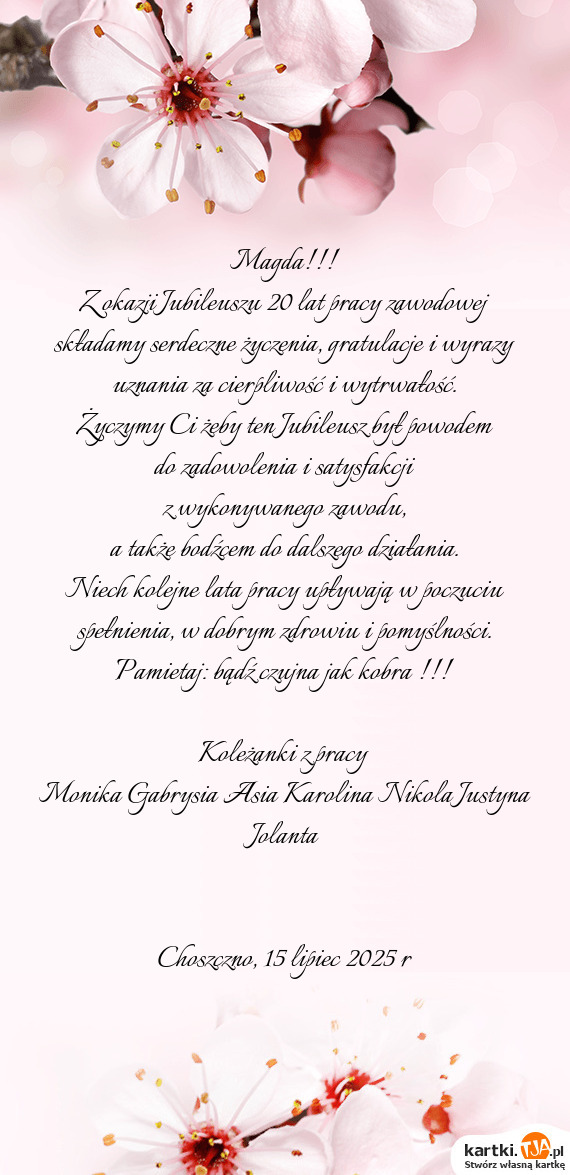 Magda!!!
Z okazji Jubileuszu 20 lat pracy zawodowej
składamy serdeczne życzenia, gratulacje i wyrazy
uznania za cierpliwość i wytrwałość.
Życzymy Ci żeby ten Jubileusz był powodem
do zadowolenia i satysfakcji
z wykonywanego zawodu,
a także bodźcem do dalszego działania.
Niech kolejne lata pracy upływają w poczuciu
spełnienia, w dobrym zdrowiu i pomyślności.
Pamietaj: bądź czujna jak kobra !!!
Koleżanki z pracy
Monika Gabrysia Asia Karolina Nikola Justyna
Jolanta
Choszczno, 15 lipiec 2025 r
kartki.TJA.pl
Stwórz własną kartkę